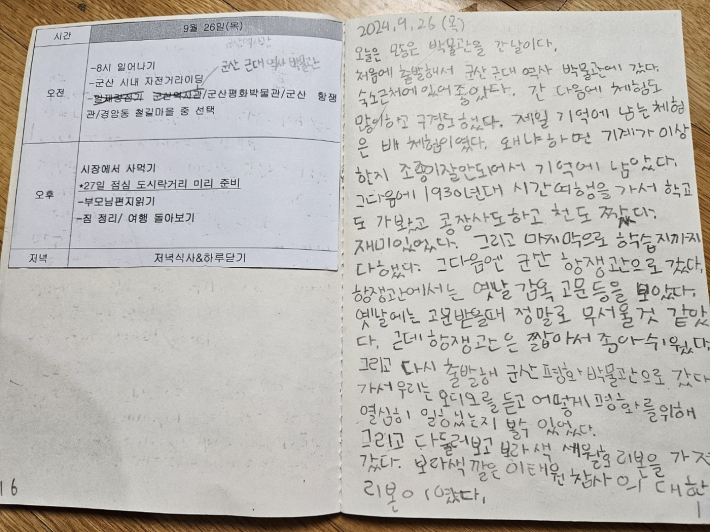 시간
9월 26일(목)
오전
-8시 일어나기
-군산 시내 자전거라이딩
군산 근대 역사 박물관
-일제강점기 군산역사관/군산평화박물관/군산 항쟁
관/경암동 철길마을 중 선택
오후
시장에서 사먹기
*27일 점심 도시락거리 미리 준비
-부모님편지읽기
-짐 정리/ 여행 돌아보기
저녁
저녁식사&하루닫기
16
2024.9.26 (목)
오늘은 모둠은 박물관을 간날이다.
처음에 출발해서 군산 근대 역사 박물관에 갔다.
숙소근처에 있어 좋았다. 간 다음에 체험도
많이하고 구경도 했다. 제일 기억에 남는체험
은 배 체험이였다. 왜냐하면 기계가 이상
한지 조종이잘안되어서 기억에 남았다.
그다음에 1930년대 시간여행을 가서 학교
도 가봤고 콩장사도하고 천도 짰다.
재미있었다. 그리고 마지막으로 학습지까지
다했다. 그다음엔 군산 항쟁관으로 갔다.
항쟁관에서는 옛날 감옥 고문등을 보았다.
옛날에는 고문받을때 정말로 무서울것 같았
다. 근데 항쟁관은 짧아서 좀아쉬웠다.
그리고 다시 출발해 군산 평화 박물관으로 갔다
가서 우리는 오디오를 듣고 어떻게 평화를위해
열심히 일했는지 볼수 있었다.
그리고 다둘러보고 보라색 세월호 리본을 가져
갔다. 보라색깔은 이태원 참사의 대한
리본이였다.